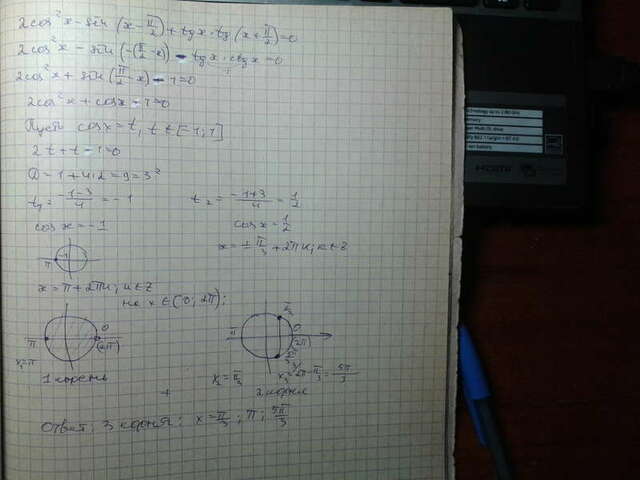 2cos²x - sin(x - π/2) + tgx · tg(x + π/2) = 0
2cos²x - sin(-(π/2 - x)) - tgx · ctgx = 0
2cos²x + sin(π/2 - x) - 1 = 0
2cos²x + cosx - 1 = 0
Пусть cosx = t, t ∈ [-1; 1]
2t + t - 1 = 0
D = 1 + 4·2 = 9 = 3²
t₁ = (-1-3)/4 = -1 t₂ = (-1+3)/4 = 1/2
cosx = -1 cosx = 1/2
x = ± π/3 + 2πn, n ∈ Z
π -1
x = π + 2πn, n ∈ Z
на x ∈ (0; 2π):
π 0 (2π) π π/3 0 (2π)
x₁ = π
x₂ = π/3 x₃ = 2π - π/3 = 5π/3
1 корень + 2 корня
Ответ: 3 корня: x = π/3; π; 5π/3
HDMI